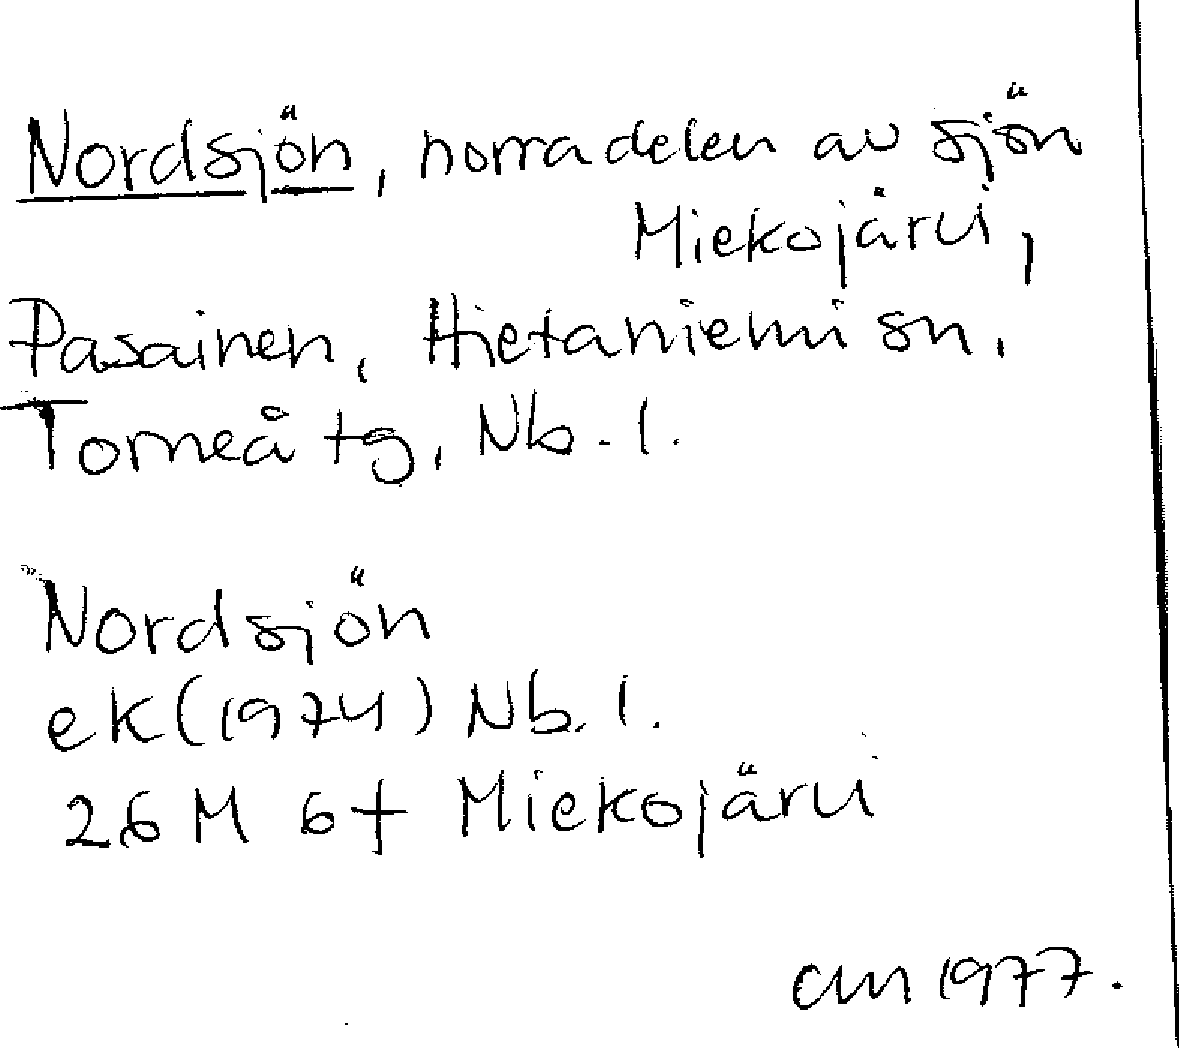 Nordsjön, norra delen av sjön
Miekojärvi,
Pasainen, Hietaniemi sn,
Torneå tg, Nb. l.
Nordsjön
ek (1974) Nb. l.
26 M 6f Miekojärvi
1977.